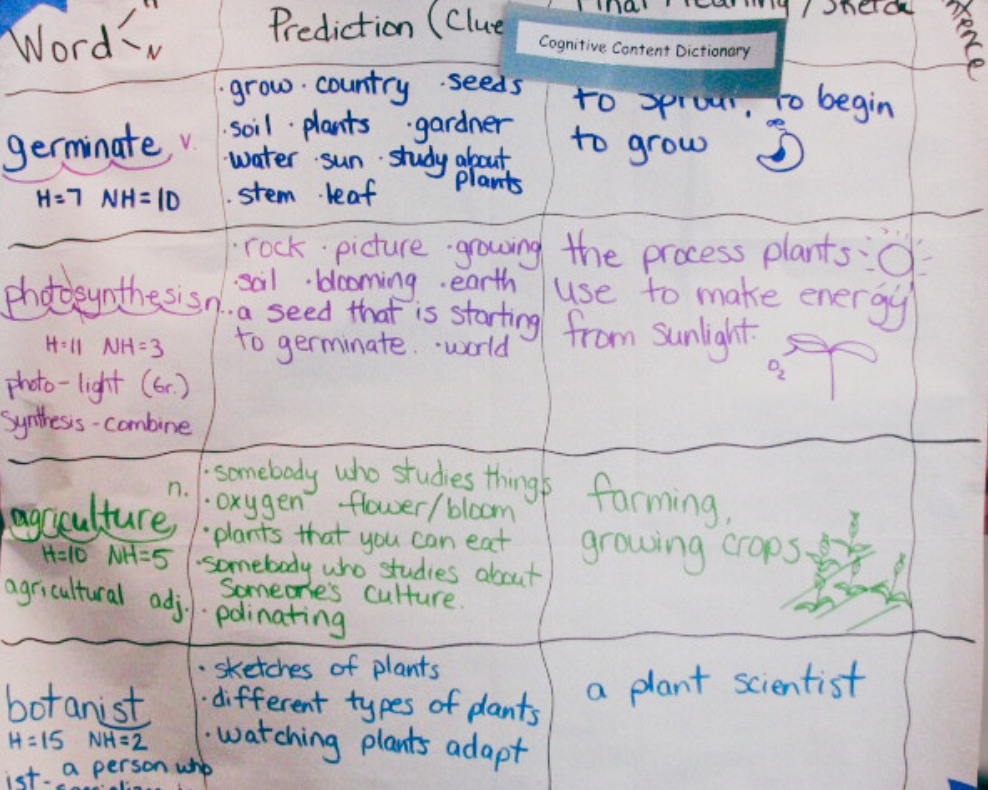 Word N
Prediction (Clue
Final Meaning / Sketch
Cognitive Content Dictionary
germinate v.
H=7 NH=10
· grow · country · seeds
· soil · plants · gardner
· water · sun · study about
plants
· stem · leaf
to sprout, to begin
to grow
photosynthesis n.
H=11 NH=3
photo-light (Gr.)
Synthesis-combine
· rock · picture · growing
· soil · blooming · earth
· a seed that is starting
to germinate. · world
the process plants
use to make energy
from sunlight.
O2
n.
agriculture
H=10 NH=5
agricultural adj.
· somebody who studies things
· oxygen flower/bloom
· plants that you can eat
· somebody who studies about
Someone's culture.
· polinating
farming,
growing crops
botanist
H=15 NH=2
ist- a person who
· sketches of plants
· different types of plants
· watching plants adapt
a plant scientist